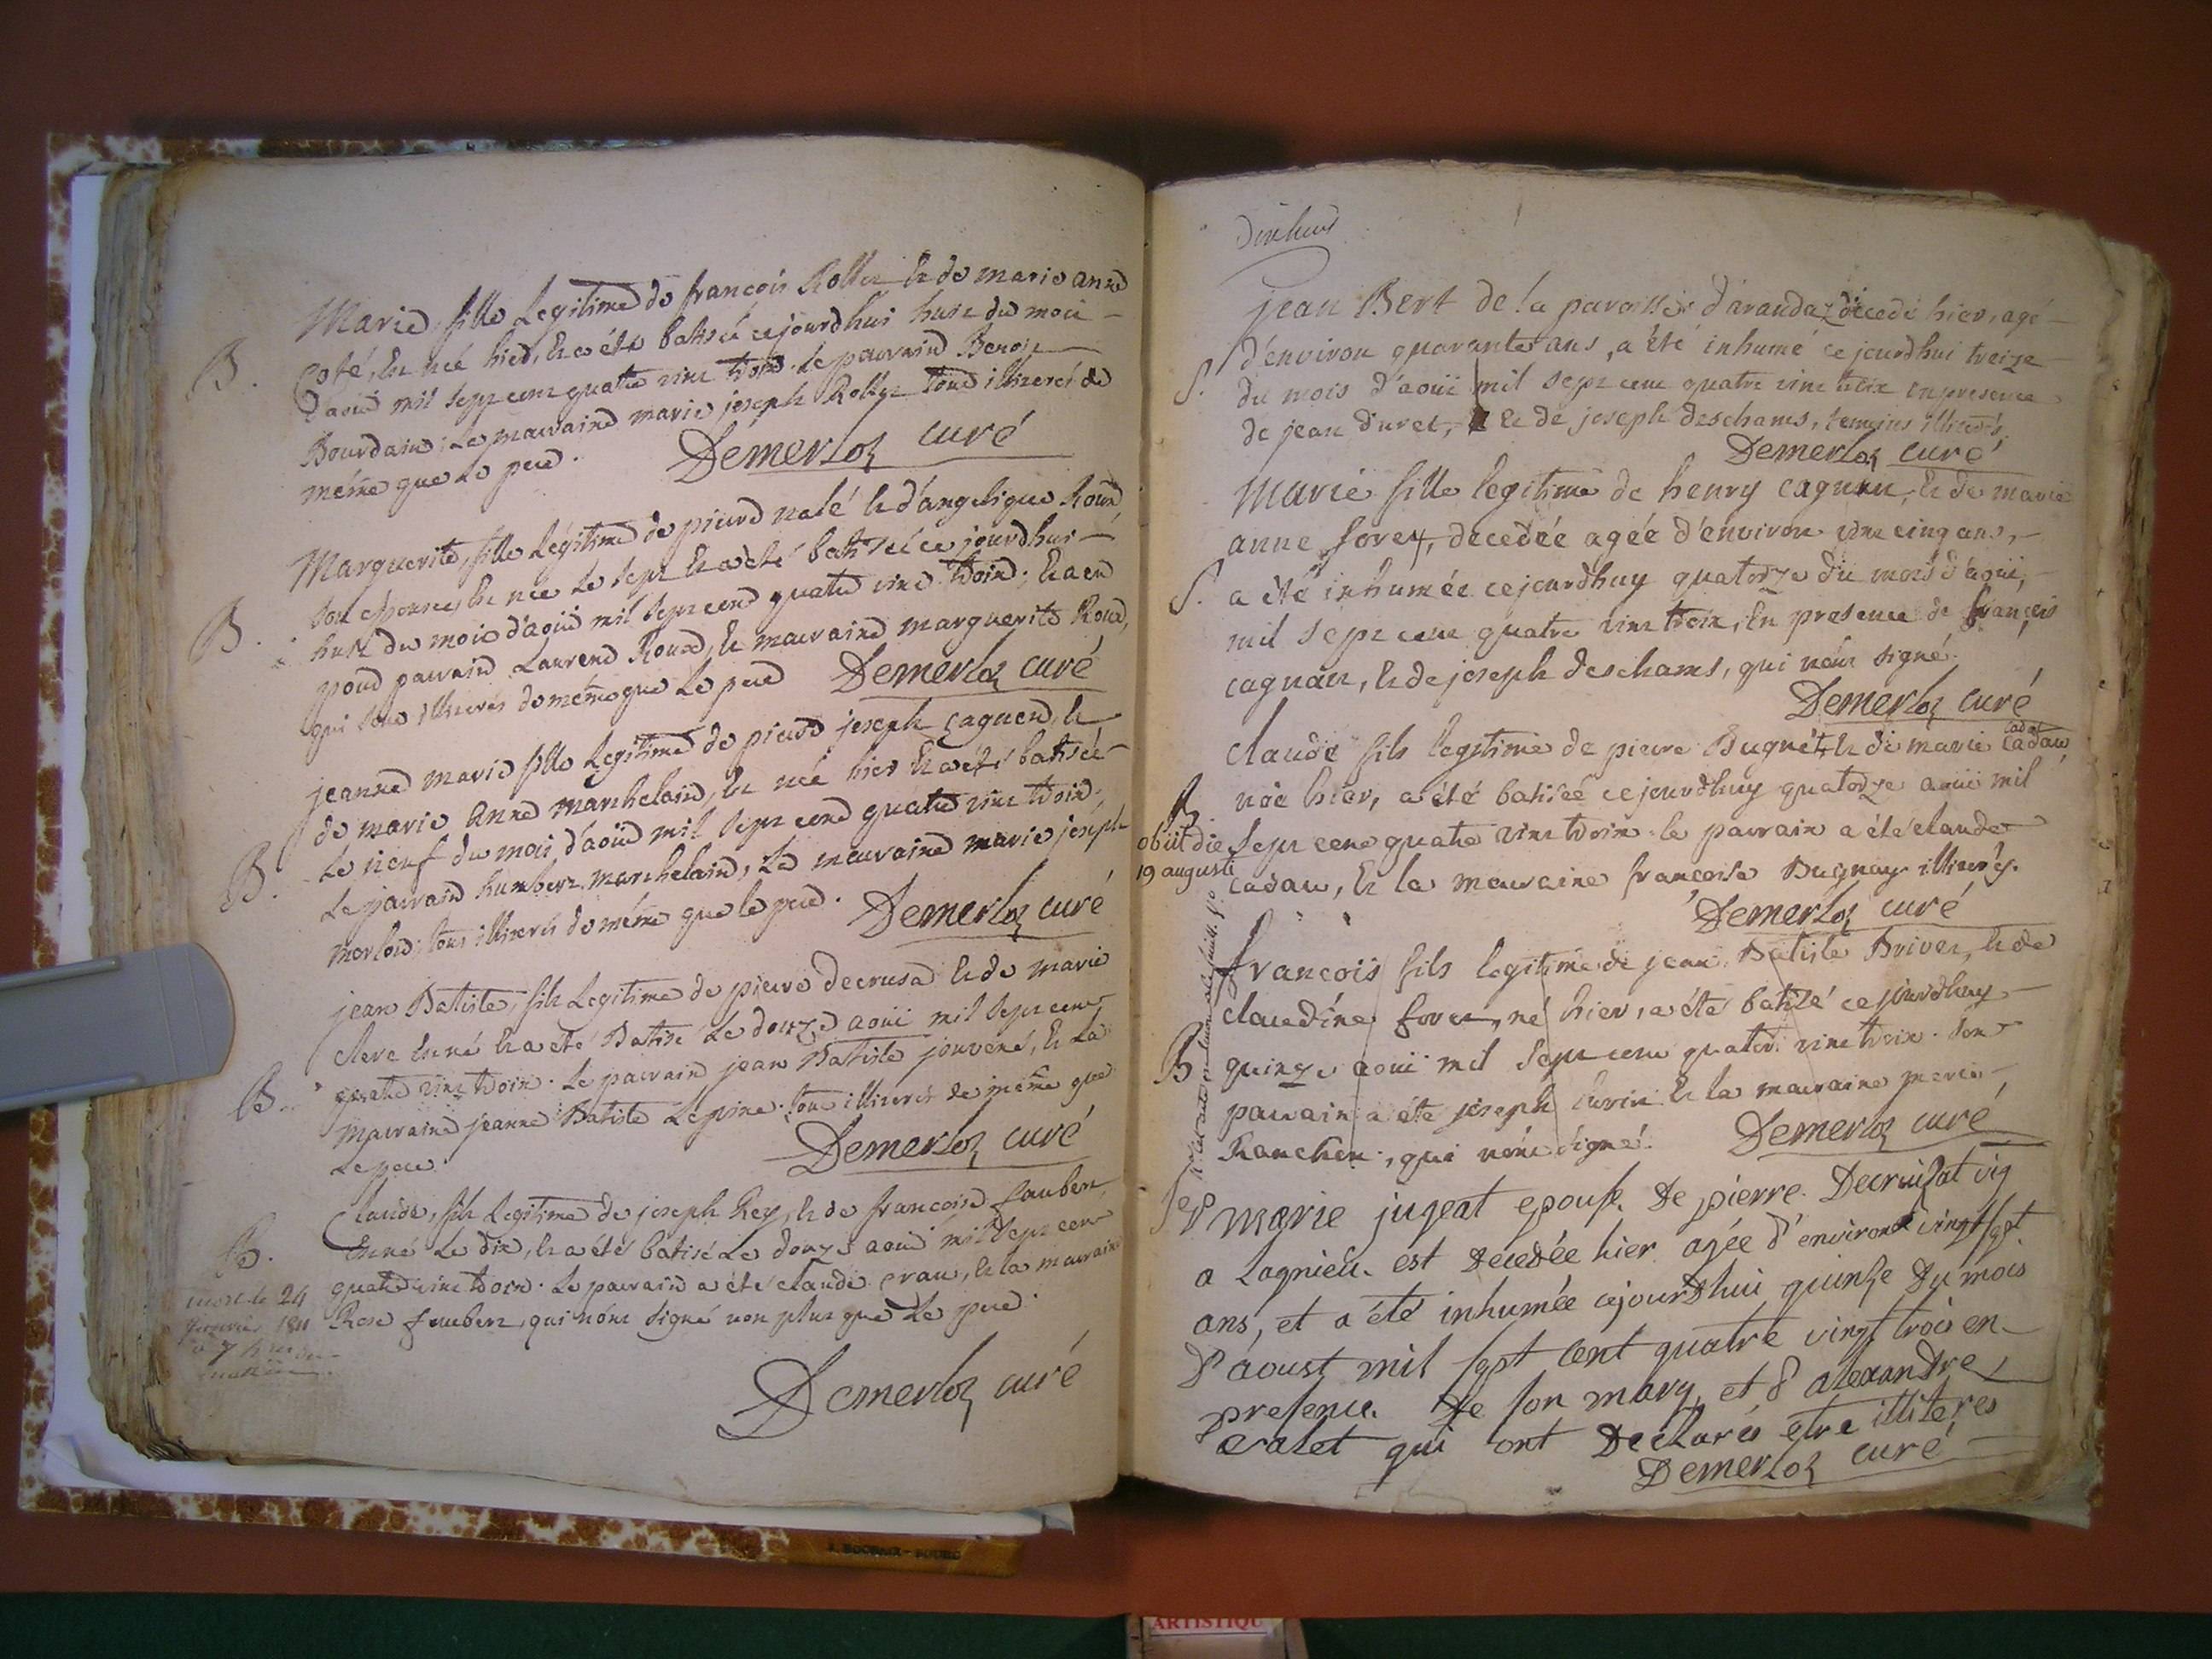 Marie, fille Legitime de francois Rollet et de marie anne
B. Coté, est née hier, et a été batisée cejourdhui huit du mois
d'aoüt mil sept cent quatre vint trois. le parrain Benoit
Bourdain; La marraine marie joseph Rollet tous illiterés de
même que Le pere. Demerloz curé
Marguerite, fille Légitime de pierre nalé et d'angelique Roux,
son epouse, est née Le sept et a été batisée cejourdhui
B. huit du mois d'aoüt mil sept cent quatre vint trois; et a eu
pour parrain Laurend Roux, et marraine marguerite Roux,
qui sont illiterés de même que Le pere Demerloz curé
jeanne marie fille Legitime de pierre joseph cagnen, et
de marie Anne marchelain, est née hier et a été batisée
B. Le neuf du mois d'aoüt mil sept cent quatre vint trois,
Le parrain humbert marchelain, La marraine marie joseph
merlord; tous illiterés de même que le pere. Demerloz curé
jean Batiste, fils Legitime de pierre decrusa et de marie
clerc est né et a été Batisé Le douze aoüt mil sept cent
B. quatre vint trois. Le parrain jean Batiste jouvené, et La
marraine jeanne Batiste Lepine. tous illiterés de même que
Le pere. Demerloz curé
Claude, fils Legitime de joseph Rey, et de francoise faubert,
B. est né Le dix, et a été batisé Le douze aoüt mil sept cent
quatre vint trois. Le parrain a été claude crau, et la marraine
Rose faubert, qui n'ont signé non plus que Le pere.
mort le 24
janvier 1811
à 7 heures du
matin
Demerloz curé
Dix huit
jean Bert de la paroisse d'arandaz décedé hier, agé
d'environ quarante ans, a été inhumé ce jourdhui treize
S. du mois d'aoüt mil sept cent quatre vint trois en presence
de jean duret, et de joseph deschams, temoins illiterés.
Demerloz curé
Marie fille legitime de henry cagnen, et de marie
anne foret, decedée agée d'environ vint cinq ans,
S. a été inhumée cejourdhuy quatorze du mois d'aoüt,
mil sept cent quatre vint trois, En presence de françois
cagnan, et de joseph deschams, qui n'ont signé.
Demerloz curé
claude fils legitime de pierre Bugnét et de marie cadau
cadau
née hier, a été batisée cejourdhuy quatorze aoüt mil
B
obiit die
19 augusti
sept cent quatre vint trois. le parrain a été claude
cadau, Et la marraine francoise Bugnay illiterés.
Demerloz curé
francois fils legitime de jean Batiste Brivet, et de
claudine foret, né hier, a été batizé ce jourdhuy
B quinze aoüt mil sept cent quatre vint trois. son
parrain a été joseph curin et la marraine marie
Ranchin, qui n'ont signé. Demerloz curé
Sep marie jugeat epouse De pierre Decruisat vig
a Lagnieu est Décedée hier agée d'environ vingt sept
ans, et a été inhumée cejourdhui quinze Du mois
D'aoust mil sept cent quatre vingt trois en
presence De son mary et d'alexandre
valet qui ont Declarés etre illiteres
Demerloz curé
ARTISTIQU